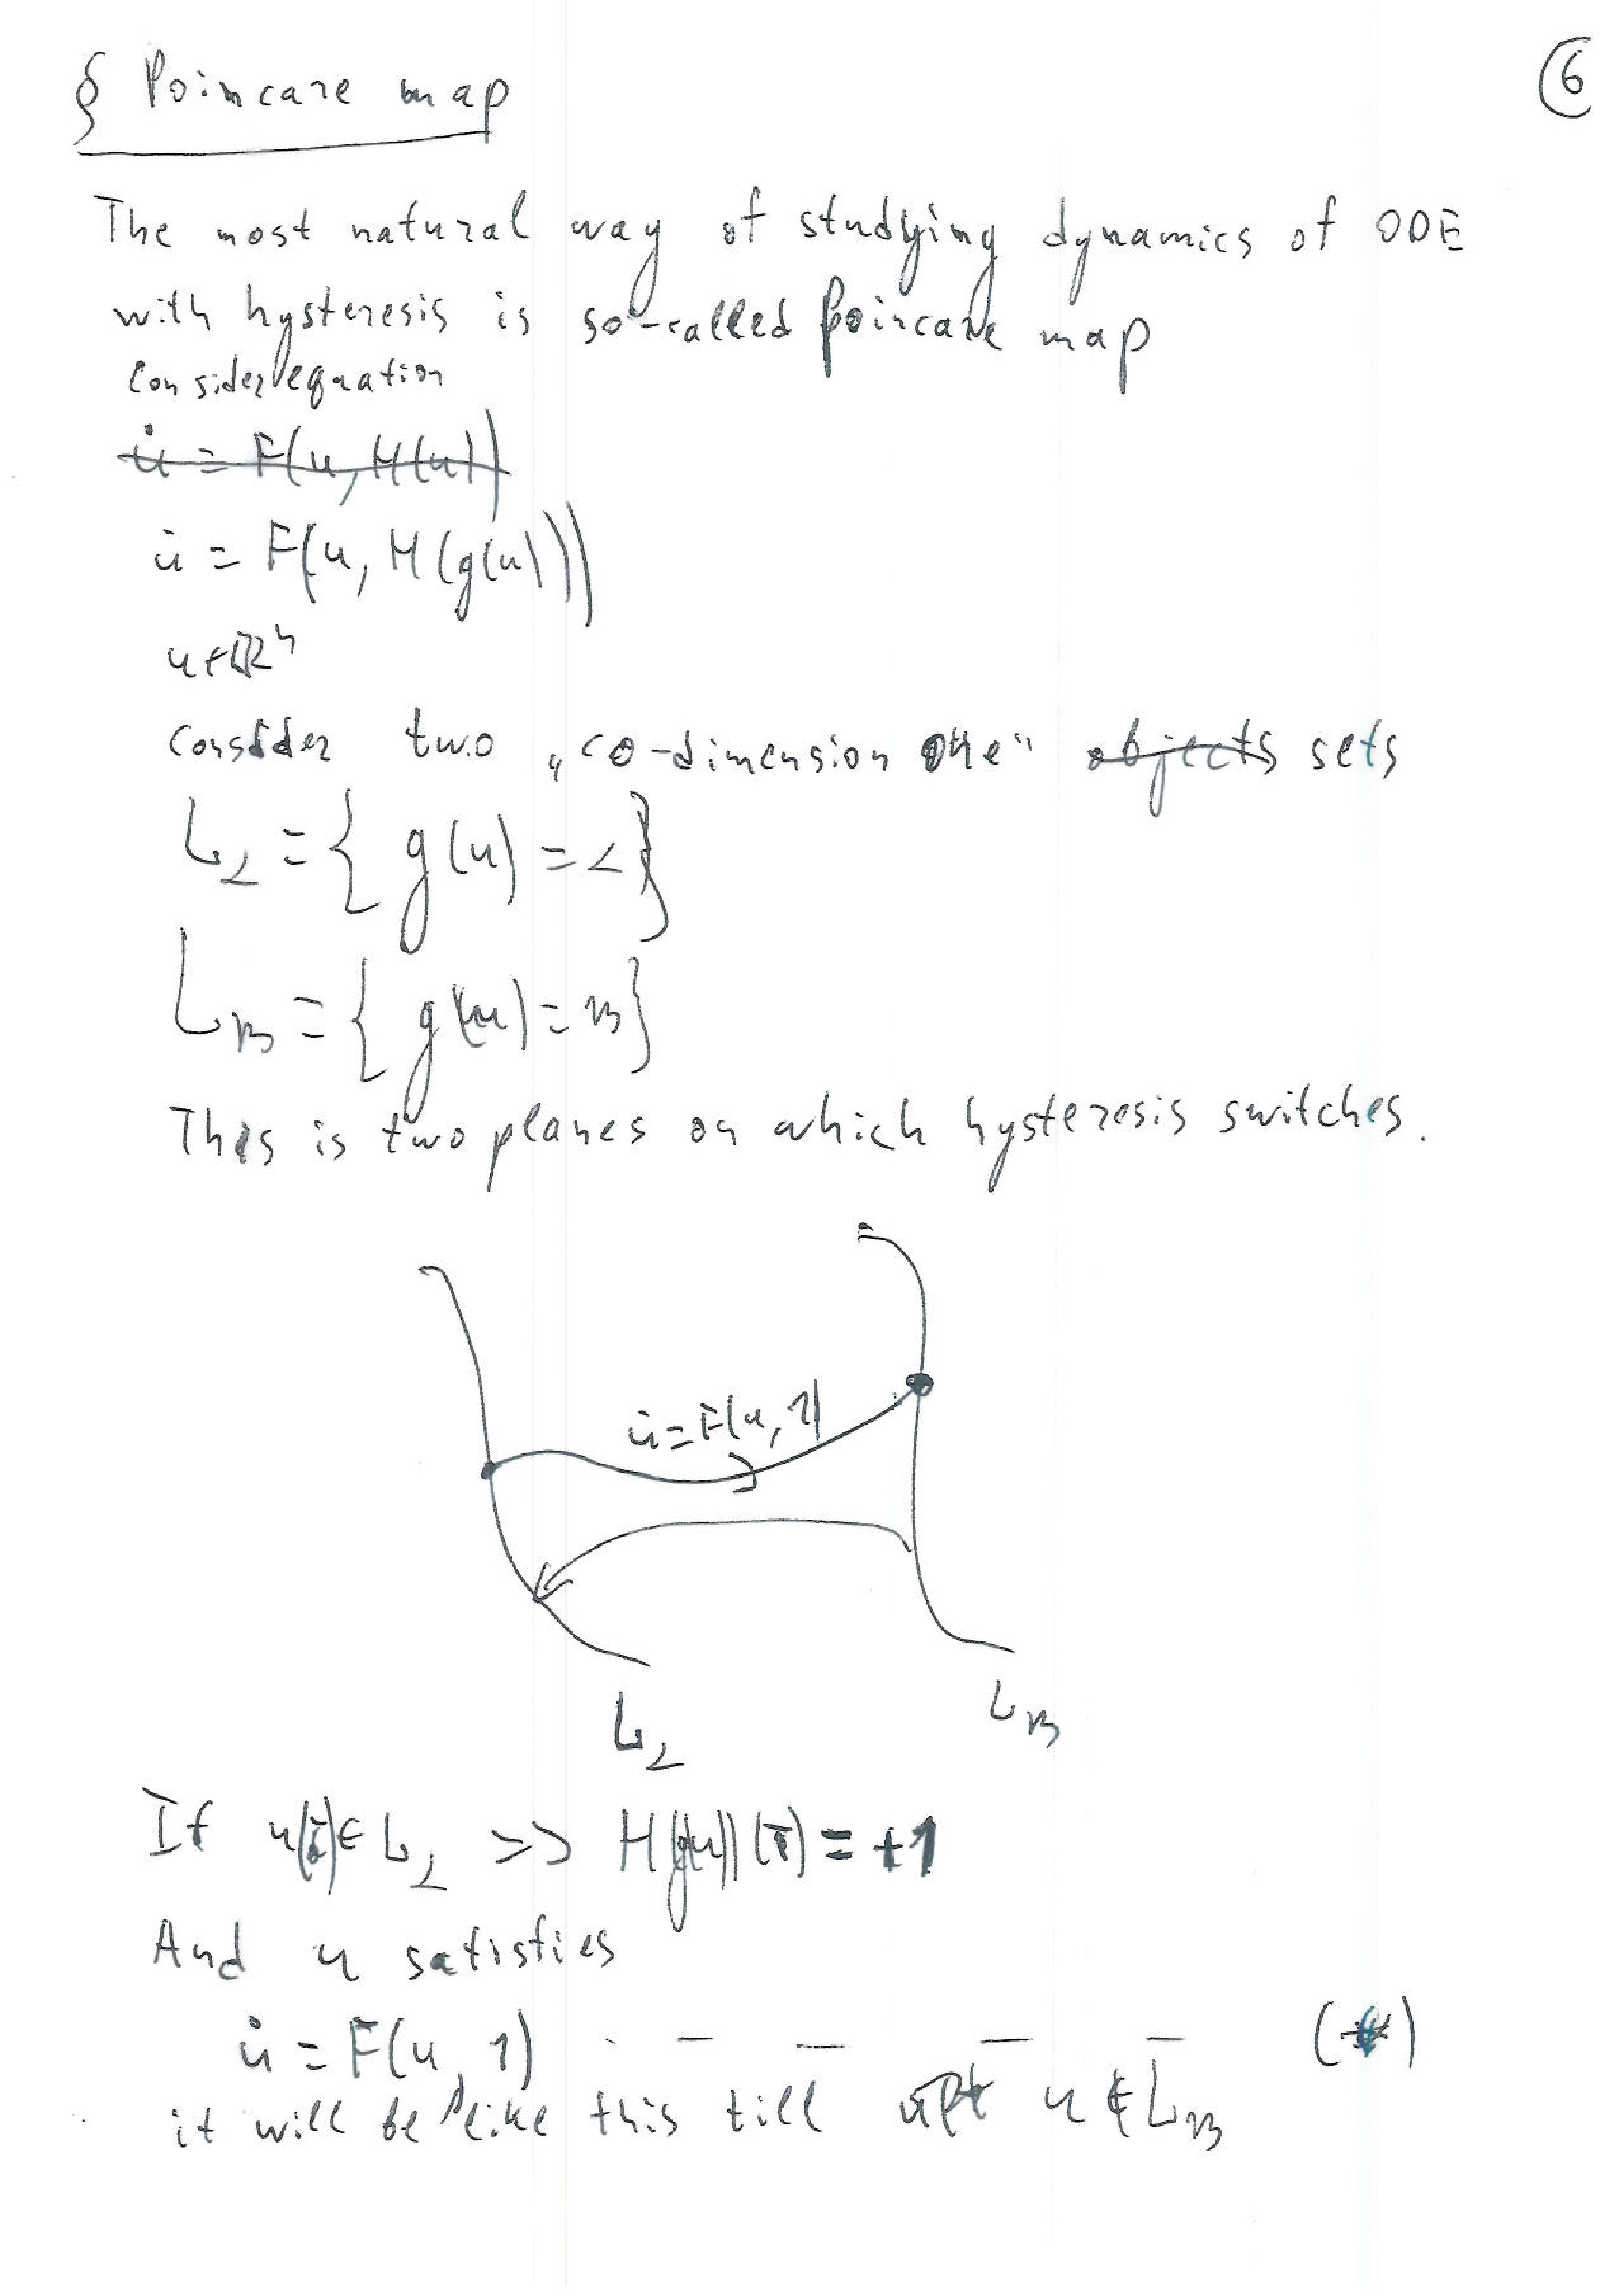 § Poincare map
6
The most natural way of studying dynamics of ODE
with hysteresis is so-called Poincare map
Consider equation
u̇ = F(u, H(u))
u̇ = F(u, H(g(u)))
u ∈ ℝⁿ
consider two „co-dimension one“ objects sets
L_α = { g(u) = α }
L_β = { g(u) = β }
This is two planes on which hysteresis switches.
u̇ = F(u, 1)
L_α
L_β
If u( ) ∈ L_α => H(g(u)) ( ) = +1
And u satisfies
u̇ = F(u, 1) . — — — — (*)
it will be like this till u ∉ L_β